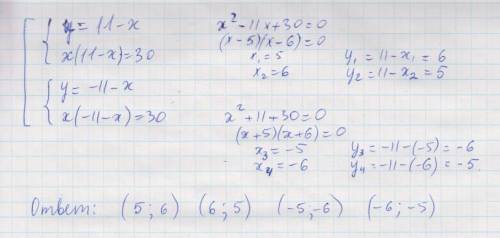 y = 11 - x
x(11-x)=30
x² - 11x + 30 = 0
(x-5)(x-6)=0
x₁ = 5
x₂ = 6
y₁ = 11 - x₁ = 6
y₂ = 11 - x₂ = 5
y = -11 - x
x(-11-x)=30
x² + 11 + 30 = 0
(x+5)(x+6)=0
x₃ = -5
x₄ = -6
y₃ = -11-(-5) = -6
y₄ = -11-(-6) = -5
Ответ: (5; 6) (6; 5) (-5;-6) (-6; -5)